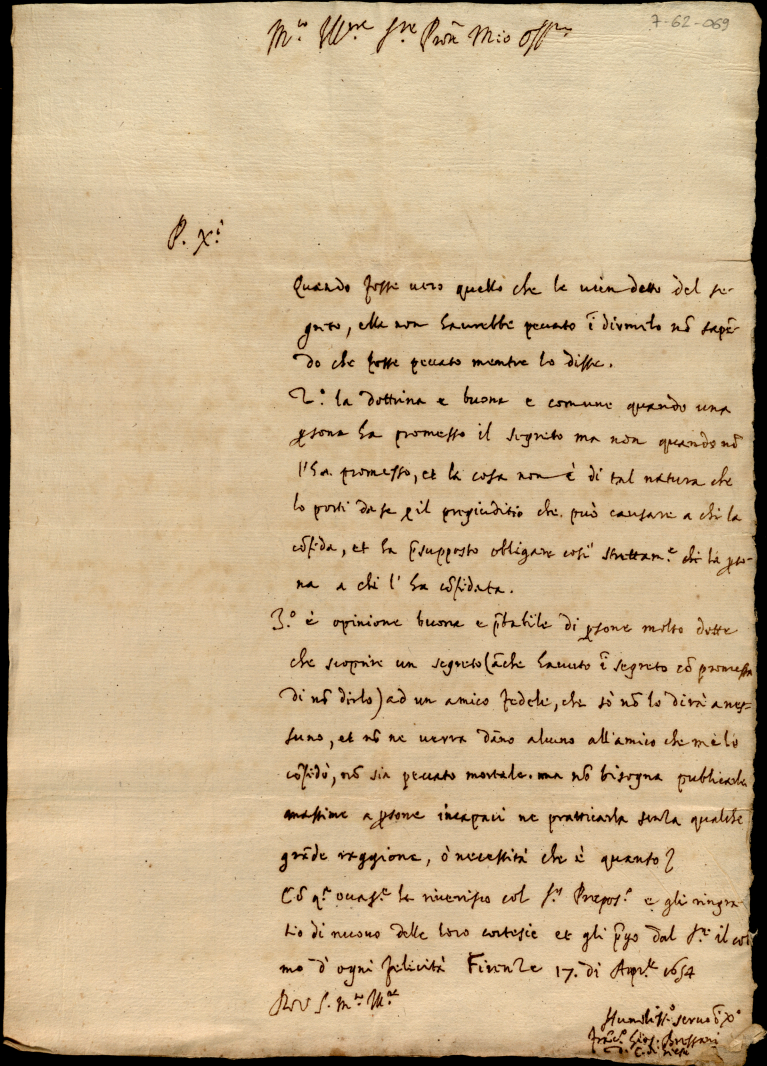 7-62-069
M.to Ill.re Sig.re Pron Mio Oss.mo
P. X.i
Quando fosse uero quello che le uien detto del se-
greto, ella non haurebbe peccato ĩ dirmelo nõ sapẽ-
do che fosse peccato mentre lo disse.
2.o la dottrina e buona e comune quando una
psona ha promesso il segreto ma non quando nõ
l'ha promesso, et la cosa non è di tal natura che
lo porti da se p il pregiuditio che può causare a chi la
cõfida, et ha p̃supposto obligare così strettam.e chi la pso-
na a chi l'ha cõfidata.
3.o è opinione buona e p̃babile di psone molto dotte
che scoprire un segreto (ãche hauuto ĩ segreto cõ promessa
di nõ dirlo) ad un amico fedele, che sò nõ lo dirà a nes-
suno, et nõ ne uerra dãno alcuno all'amico che me lo
cõfidò, nõ sia peccato mortale. ma nõ bisogna publicarla
massime a psone incapaci ne pratticarla senza qualche
grãde raggione, ò necessità che è quanto
Cõ q.a le riuerisco col S.r Prepos.o e gli ringra-
tio di nuouo delle loro cortesie et gli p̃go dal S.re il col-
mo d'ogni felicità Firenze 17. di Apr.le 1654
S. M.to Ill.re
Humiliss.o seruo X.o
Fran.co Gios. Bressani
d. C. di Giesù